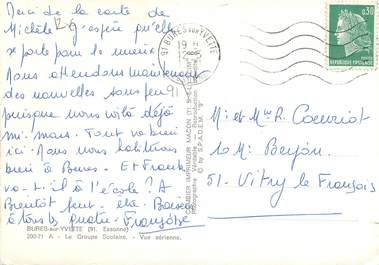 Merci de la carte de
Michèle. J'espère qu'elle
se porte pour le mieux
Nous attendons maintenant
des nouvelles sous peu
puisque nous voilà déjà
mi-mars. Tout va bien
ici. Nous nous habituons
bien à Bures. Et Franck
va-t-il à l'école ? A
Bientôt peut-être. Baisers
à tous les quatre. Françoise
BURES-sur-YVETTE (91. Essonne)
200-71 A - Le Groupe Scolaire. - Vue aérienne.
COMBIER IMPRIMEUR MACON
© by S.P.A.D.E.M.
91 BURES SUR YVETTE
19 H
0,30
REPUBLIQUE FRANÇAISE
M. et Mme R. Coeuriot
10 M.
51. Vitry le François